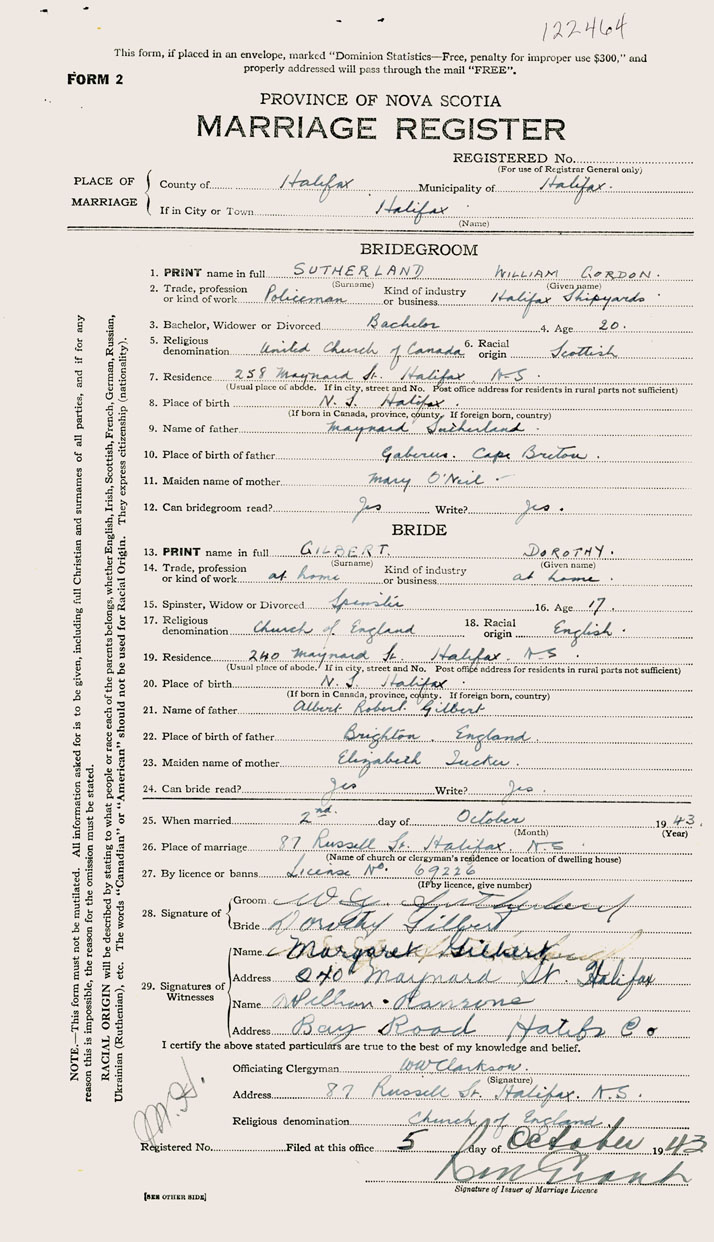 122464
This form, if placed in an envelope, marked "Dominion Statistics—Free, penalty for improper use $300," and
properly addressed will pass through the mail "FREE".
FORM 2
PROVINCE OF NOVA SCOTIA
MARRIAGE REGISTER
REGISTERED No.
(For use of Registrar General only)
PLACE OF MARRIAGE
County of Halifax Municipality of Halifax.
If in City or Town Halifax
(Name)
BRIDEGROOM
1. PRINT name in full SUTHERLAND WILLIAM GORDON.
(Surname) (Given name)
2. Trade, profession or kind of work Policeman Kind of industry or business Halifax Shipyards
3. Bachelor, Widower or Divorced Bachelor 4. Age 20.
5. Religious denomination United Church of Canada 6. Racial origin Scottish
7. Residence 258 Maynard St. Halifax N.S.
(Usual place of abode. If in city, street and No. Post office address for residents in rural parts not sufficient)
8. Place of birth N.S. Halifax.
(If born in Canada, province, county. If foreign born, country)
9. Name of father Maynard Sutherland.
10. Place of birth of father Gaberus. Cape Breton.
11. Maiden name of mother Mary O'Neil
12. Can bridegroom read? Yes Write? Yes.
BRIDE
13. PRINT name in full GILBERT. DOROTHY.
(Surname) (Given name)
14. Trade, profession or kind of work at home Kind of industry or business at home.
15. Spinster, Widow or Divorced Spinster 16. Age 17.
17. Religious denomination Church of England 18. Racial origin English.
19. Residence 240 Maynard St. Halifax. N.S.
(Usual place of abode. If in city, street and No. Post office address for residents in rural parts not sufficient)
20. Place of birth N.S. Halifax.
(If born in Canada, province, county. If foreign born, country)
21. Name of father Albert Robert Gilbert
22. Place of birth of father Brighton. England.
23. Maiden name of mother Elizabeth Tucker.
24. Can bride read? Yes Write? Yes.
25. When married 2nd. day of October 1943.
(Month) (Year)
26. Place of marriage 87 Russell St. Halifax. N.S.
(Name of church or clergyman's residence or location of dwelling house)
27. By licence or banns License No. 69226
(If by licence, give number)
28. Signature of
Groom W G Sutherland
Bride Dorothy Gilbert
29. Signatures of Witnesses
Name Margaret Gilbert
Address 240 Maynard St. Halifax
Name William Ransone
Address Bay Road Halifx Co
I certify the above stated particulars are true to the best of my knowledge and belief.
Officiating Clergyman WW Clarkson.
(Signature)
Address 87 Russell St. Halifax. N.S.
Religious denomination Church of England.
Registered No. Filed at this office 5 day of October 1943
Signature of Issuer of Marriage Licence
[SEE OTHER SIDE]
NOTE.—This form must not be mutilated. All information asked for is to be given, including full Christian and surnames of all parties, and if for any
reason this is impossible, the reason for the omission must be stated.
RACIAL ORIGIN will be described by stating to what people or race each of the parents belongs, whether English, Irish, Scottish, French, German, Russian,
Ukrainian (Ruthenian), etc. The words "Canadian" or "American" should not be used for Racial Origin. They express citizenship (nationality).